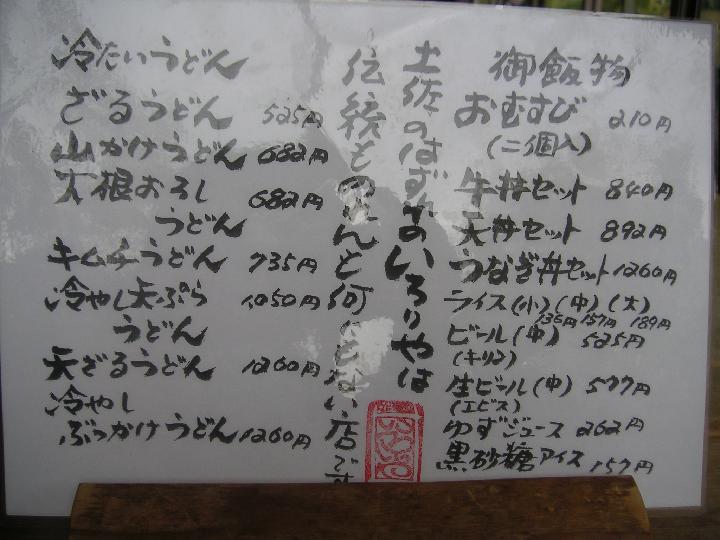 御飯物
おむすび 210円
(二個入)
牛丼セット 840円
天丼セット 892円
うなぎ丼セット 1260円
ライス(小)(中)(大)
136円 157円 189円
ビール(中) 525円
(キリン)
生ビール(中) 577円
(エビス)
ゆずジュース 262円
黒砂糖アイス 157円
土佐のはずれのいろりやは
伝統ものれんも何にもない店です
冷たいうどん
ざるうどん 525円
山かけうどん 682円
大根おろし
うどん 682円
キムチうどん 735円
冷やし天ぷら
うどん 1,050円
天ざるうどん 1260円
冷やし
ぶっかけうどん 1260円